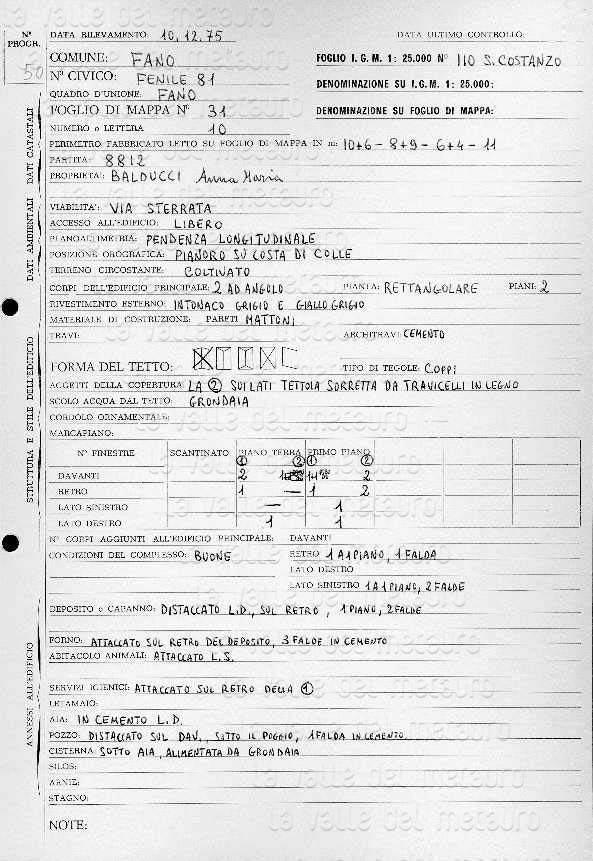 N° PROGR.
50
DATA RILEVAMENTO: 10.12.75
DATA ULTIMO CONTROLLO:
COMUNE: FANO
FOGLIO I.G.M. 1: 25.000 N° 110 S. COSTANZO
N° CIVICO: FENILE 81
DENOMINAZIONE SU I.G.M. 1: 25.000:
QUADRO D'UNIONE: FANO
FOGLIO DI MAPPA N° 31
DENOMINAZIONE SU FOGLIO DI MAPPA:
NUMERO o LETTERA 10
PERIMETRO FABBRICATO LETTO SU FOGLIO DI MAPPA IN m: 10+6-8+9-6+4-11
PARTITA: 8812
PROPRIETA': BALDUCCI Anna Maria
DATI CATASTALI
VIABILITA': VIA STERRATA
ACCESSO ALL'EDIFICIO: LIBERO
PLANOALTIMETRIA: PENDENZA LONGITUDINALE
POSIZIONE OROGRAFICA: PIANORO SU COSTA DI COLLE
TERRENO CIRCOSTANTE: COLTIVATO
DATI AMBIENTALI
CORPI DELL'EDIFICIO PRINCIPALE: 2 AD ANGOLO PIANTA: RETTANGOLARE PIANI: 2
RIVESTIMENTO ESTERNO: INTONACO GRIGIO E GIALLO GRIGIO
MATERIALE DI COSTRUZIONE: PARETI MATTONI
TRAVI: ARCHITRAVI CEMENTO
FORMA DEL TETTO: TIPO DI TEGOLE: COPPI
AGGETTI DELLA COPERTURA: LA 2 SUI LATI TETTOIA SORRETTA DA TRAVICELLI IN LEGNO
SCOLO ACQUA DAL TETTO: GRONDAIA
CORDOLO ORNAMENTALE:
MARCAPIANO:
N° FINESTRE SCANTINATO PIANO TERRA PRIMO PIANO
1 2 1 2
DAVANTI 2 1 2
RETRO 1 — 1 2
LATO SINISTRO — 1
LATO DESTRO 1 1
STRUTTURA E STILE DELL'EDIFICIO
N° CORPI AGGIUNTI ALL'EDIFICIO PRINCIPALE: DAVANTI
CONDIZIONI DEL COMPLESSO: BUONE RETRO 1 A 1 PIANO, 1 FALDA
LATO DESTRO
LATO SINISTRO 1 A 1 PIANO, 2 FALDE
DEPOSITO o CAPANNO: DISTACCATO L.D., SUL RETRO, 1 PIANO, 2 FALDE
FORNO: ATTACCATO SUL RETRO DEL DEPOSITO, 3 FALDE IN CEMENTO
ABITACOLO ANIMALI: ATTACCATO L.S.
SERVIZI IGIENICI: ATTACCATO SUL RETRO DELLA 1
LETAMAIO:
AIA: IN CEMENTO L.D.
POZZO: DISTACCATO SUL DAV. SOTTO IL POGGIO, 1 FALDA IN CEMENTO
CISTERNA: SOTTO AIA, ALIMENTATA DA GRONDAIA
SILOS:
ARNIE:
STAGNO:
ANNESSI ALL'EDIFICIO
NOTE:
la valle del metauro